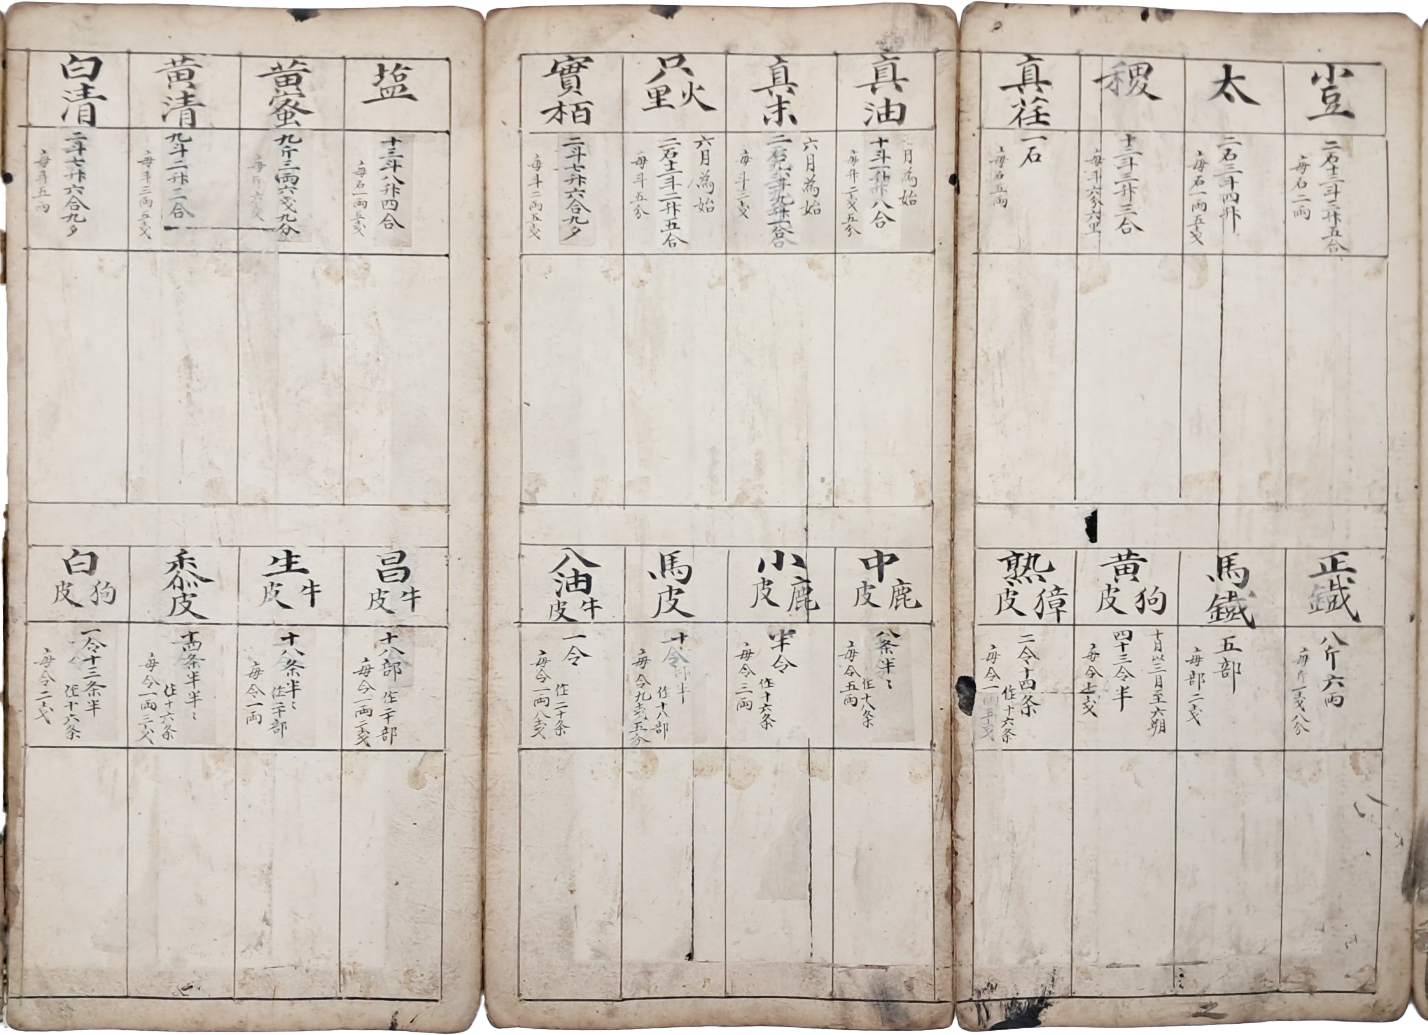 小豆
二石十三斗三升五合
每石二両
太
二石三斗四升
每石一両五戔
稷
十三斗三升三合
每斗六分六里
真荏
一石
每石五両
真油
月為始
十斗八合
每升二戔五分
真末
六月為始
每斗二戔
只火里
六月為始
二石十一斗二升五合
每斗五分
實栢
二斗七升六合九夕
每斗二両五戔
塩
十三斗八升四合
每石一両五戔
黄蜜
九斤三両六戔九分
黄清
九斗二升二合
每斗三両五戔
白清
二斗七升六合九夕
每斗五両
正鐵
八斤六両
每斤一戔八分
馬鐵
五部
每部二戔
黄狗皮
十月以三月至六朔
四十三令半
每令七戔
熟獐皮
二令十四条
作十六条
每令一両五戔
中鹿皮
八条半
作十八条
每令五両
小鹿皮
半令
作十六条
每令三両
馬皮
十令部半
作十八部
每令九戔五分
八油牛皮
一令
作二十条
每令一両八戔
昌牛皮
十八部
作二十部
每令一両二戔
生牛皮
十八条半
作二十部
每令一両
黍皮
十四条半半
作十六条
每令一両三戔
白狗皮
一令十三条半
作十六条
每令二戔